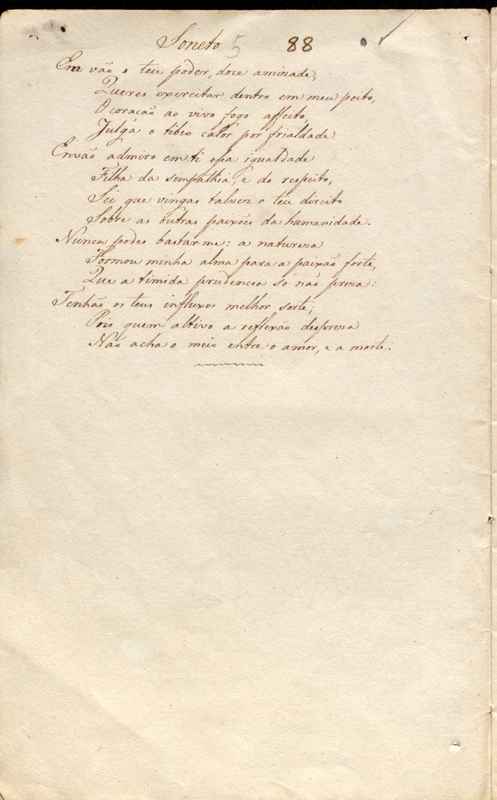 Soneto 5 88
Em vão o teu poder, doce amizade,
Queres exercitar dentro em meu peito,
O coração ao vivo fogo affeito,
Julga o tibio calor por frialdade
Em vão admiro em ti essa igualdade
Filha da sempathia, e do respeito,
Sei que vingas talvez o teu direito
Sobre as outras paixões da humanidade.
Nunca podes bastar me: a natureza
Formou minha alma para a paixão forte,
Que a timida prudencia só não preza:
Tenhão os teus influxos melhor sorte;
Pois quem altivo a reflexão despreza
Não acha o meio entre o amor, e a morte.